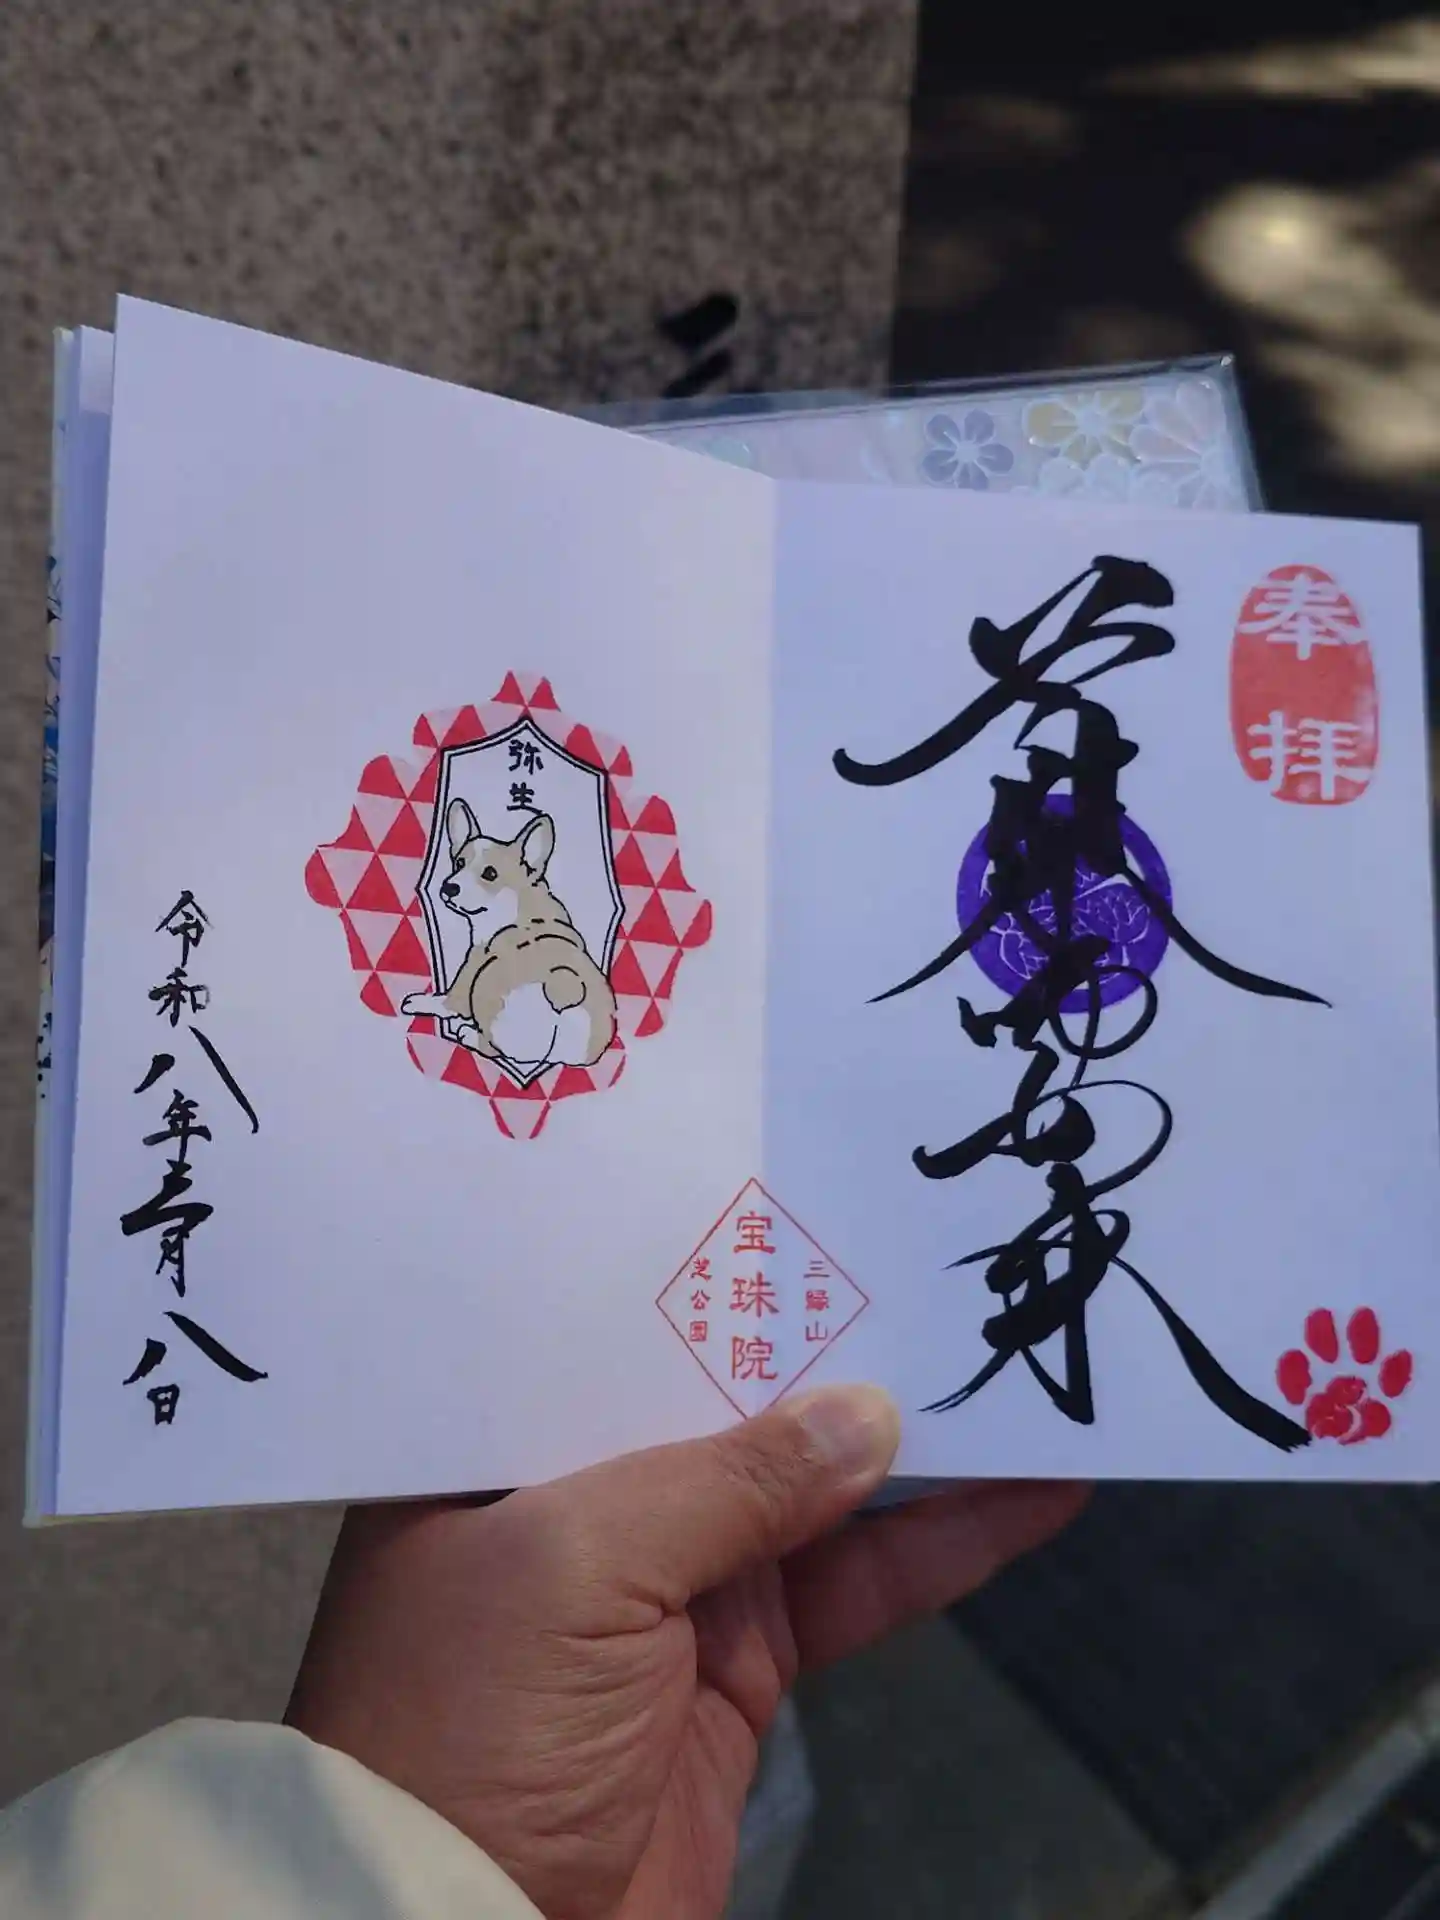 奉拝
薬師如来
三縁山
宝珠院
芝公園
弥生
令和八年三月八日